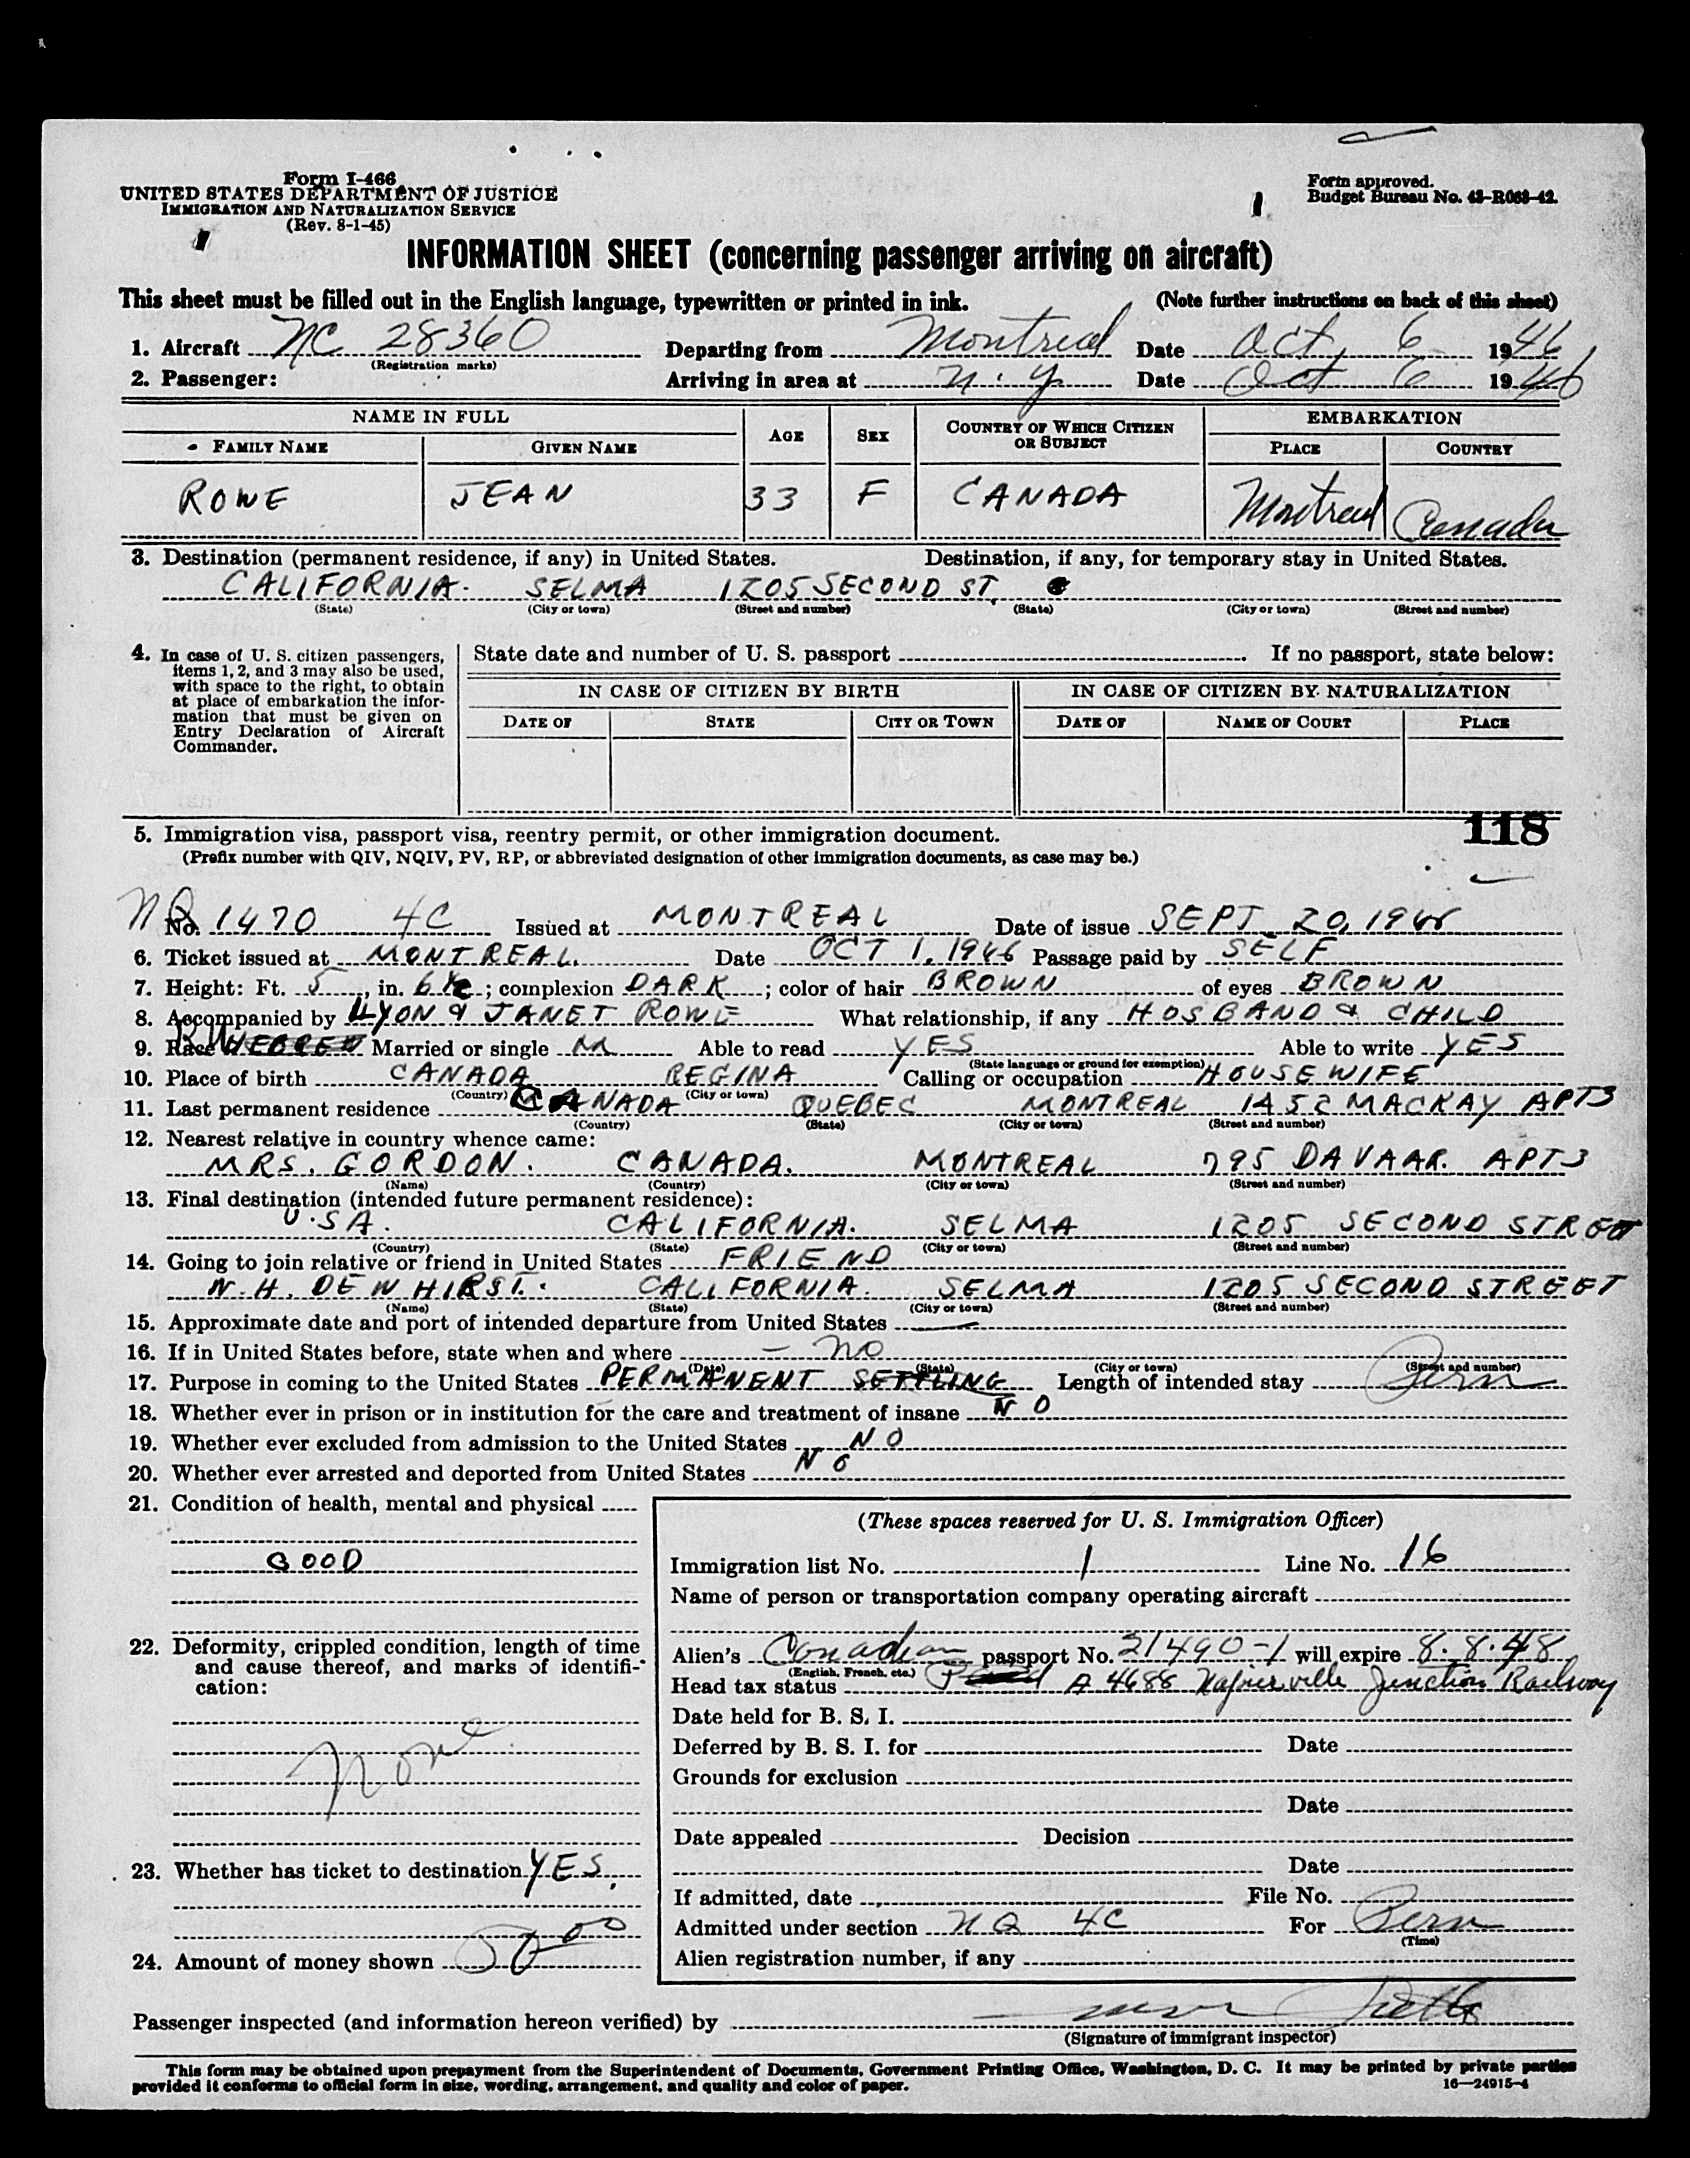 Form I-466
UNITED STATES DEPARTMENT OF JUSTICE
IMMIGRATION AND NATURALIZATION SERVICE
(Rev. 8-1-45)
Form approved.
Budget Bureau No. 43-R063-42.
INFORMATION SHEET (concerning passenger arriving on aircraft)
This sheet must be filled out in the English language, typewritten or printed in ink. (Note further instructions on back of this sheet)
1. Aircraft NC 28360 Departing from Montreal Date Oct, 6 1946
(Registration marks)
2. Passenger: Arriving in area at N.Y. Date Oct 6 1946
NAME IN FULL AGE SEX COUNTRY OF WHICH CITIZEN OR SUBJECT EMBARKATION
FAMILY NAME GIVEN NAME PLACE COUNTRY
ROWE JEAN 33 F CANADA Montreal Canada
3. Destination (permanent residence, if any) in United States. Destination, if any, for temporary stay in United States.
CALIFORNIA. SELMA 1205 SECOND ST.
(State) (City or town) (Street and number) (State) (City or town) (Street and number)
4. In case of U. S. citizen passengers, items 1, 2, and 3 may also be used, with space to the right, to obtain at place of embarkation the information that must be given on Entry Declaration of Aircraft Commander.
State date and number of U. S. passport . If no passport, state below:
IN CASE OF CITIZEN BY BIRTH IN CASE OF CITIZEN BY NATURALIZATION
DATE OF STATE CITY OR TOWN DATE OF NAME OF COURT PLACE
118
5. Immigration visa, passport visa, reentry permit, or other immigration document.
(Prefix number with QIV, NQIV, PV, RP, or abbreviated designation of other immigration documents, as case may be.)
NQ No. 1470 4C Issued at MONTREAL Date of issue SEPT 20, 1946
6. Ticket issued at MONTREAL. Date OCT 1, 1946 Passage paid by SELF
7. Height: Ft. 5, in. 6½; complexion DARK; color of hair BROWN of eyes BROWN
8. Accompanied by LYON & JANET ROWE What relationship, if any HOSBAND & CHILD
9. Race HEBREW Married or single M Able to read YES Able to write YES
(State language or ground for exemption)
10. Place of birth CANADA REGINA Calling or occupation HOUSEWIFE
(Country) (City or town)
11. Last permanent residence CANADA QUEBEC MONTREAL 1452 MACKAY APT3
(Country) (State) (City or town) (Street and number)
12. Nearest relative in country whence came:
MRS. GORDON. CANADA. MONTREAL 795 DAVAAR. APT3
(Name) (Country) (City or town) (Street and number)
13. Final destination (intended future permanent residence):
U.S.A. CALIFORNIA. SELMA 1205 SECOND STREET
(Country) (State) (City or town) (Street and number)
14. Going to join relative or friend in United States FRIEND
N.H. DEWHIRST. CALIFORNIA. SELMA 1205 SECOND STREET
(Name) (State) (City or town) (Street and number)
15. Approximate date and port of intended departure from United States —
16. If in United States before, state when and where — no
(Date) (State) (City or town) (Street and number)
17. Purpose in coming to the United States PERMANENT SETTLING Length of intended stay Perm
18. Whether ever in prison or in institution for the care and treatment of insane NO
19. Whether ever excluded from admission to the United States NO
20. Whether ever arrested and deported from United States NO
21. Condition of health, mental and physical
GOOD
22. Deformity, crippled condition, length of time and cause thereof, and marks of identification:
None
23. Whether has ticket to destination YES.
24. Amount of money shown
(These spaces reserved for U. S. Immigration Officer)
Immigration list No. 1 Line No. 16
Name of person or transportation company operating aircraft
Alien's Canadian passport No. 21490-1 will expire 8.8.48
(English, French, etc.)
Head tax status A 4688 Napierville Junction Railway
Date held for B. S. I.
Deferred by B. S. I. for Date
Grounds for exclusion
Date
Date appealed Decision
Date
If admitted, date File No.
Admitted under section NQ 4C For Perm
(Time)
Alien registration number, if any
Passenger inspected (and information hereon verified) by
(Signature of immigrant inspector)
This form may be obtained upon prepayment from the Superintendent of Documents, Government Printing Office, Washington, D. C. It may be printed by private parties
provided it conforms to official form in size, wording, arrangement, and quality and color of paper. 16—24915-4